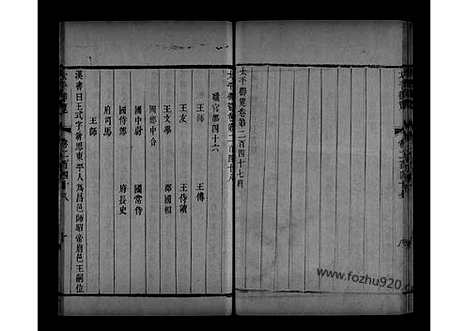 太平御覽卷第二百四十七終
太平御覽卷第二百四十八
職官部四十六
王師 王傅
王友 王侍讀
王文學 郡國相
國郎中令
國中尉 國常侍
國侍郎 府長史
府司馬
王師
漢書曰王式字翁思東平人為昌邑師昭帝崩邑王嗣位
https://www.fozhu920.com/